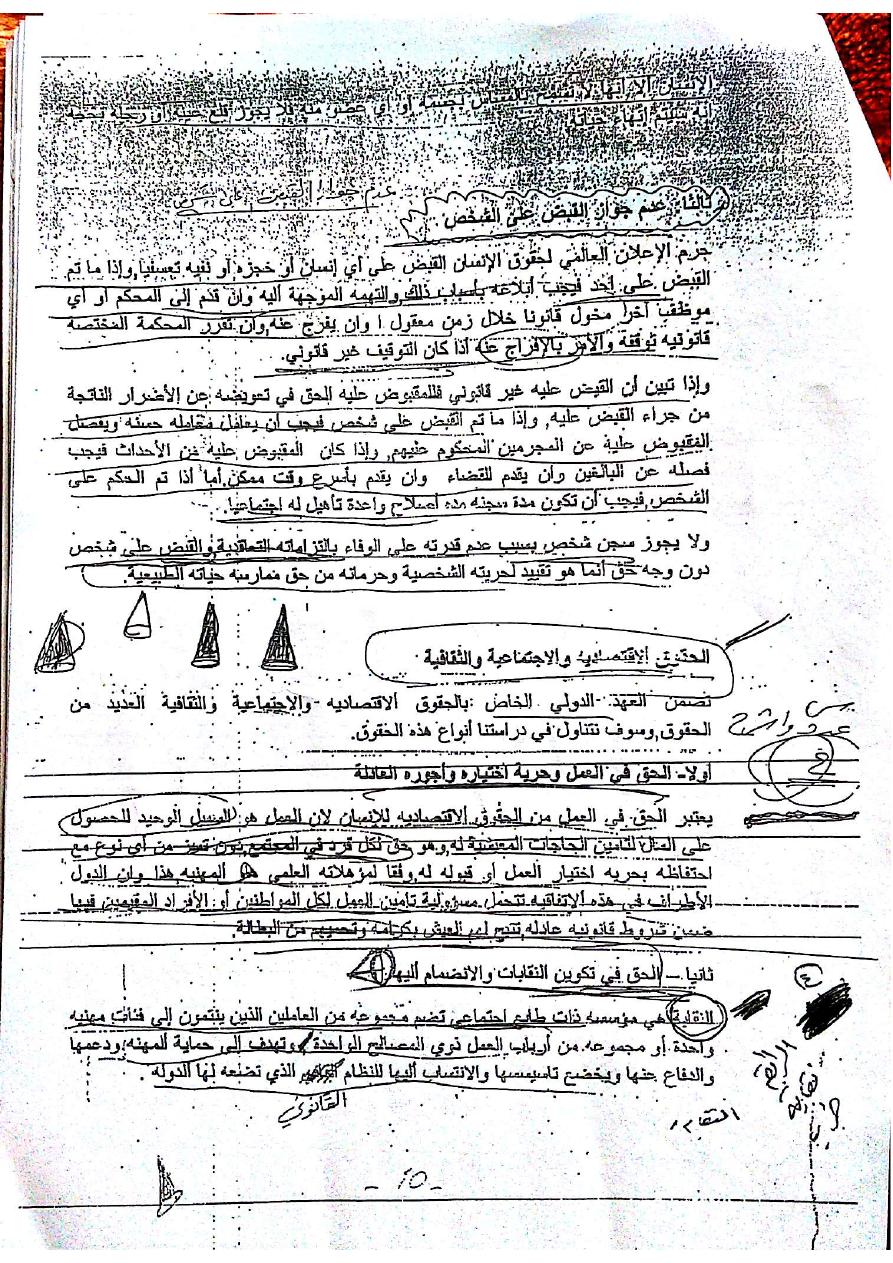 الإنسان إلا إنها لا تسمح بالمساس بجسمه أو أي عضو منه فلا يجوز
إنهاء حياته
عدم جواز القبض على شخص
ثالثا: عدم جواز القبض على الشخص
جرم الإعلان العالمي لحقوق الإنسان القبض على أي إنسان أو حجزه أو نفيه تعسفيا, وإذا ما تم
القبض على إحد فيجب أبلاغه بأسباب ذلك والتهمه الموجهة أليه وان قدم إلى المحكم أو أي
موظف أخرا مخول قانونا خلال زمن معقول ا وان يفرج عنه, وان تقرر المحكمة المختصة
قانونيه توقفه والأمر بالإفراج عنه أذا كان التوقيف غير قانوني.
وإذا تبين أن القبض عليه غير قانوني فللمقبوض عليه الحق في تعويضه عن الأضرار الناتجة
من جراء القبض عليه, وإذا ما تم القبض على شخص فيجب أن يعامل معامله حسنه ويفصل
المقبوض علية عن المجرمين المحكوم عليهم, وإذا كان المقبوض علية من الأحداث فيجب
فصله عن البالغين وان يقدم للقضاء وان يقدم بأسرع وقت ممكن أما أذا تم الحكم على
الشخص, فيجب أن تكون مدة سجنه مده أصلاح واعدة تأهيل له اجتماعيا.
ولا يجوز سجن شخص بسبب عدم قدرته على الوفاء بالتزاماته التعاقدية والقبض على شخص
دون وجه حق أنما هو تقييد لحريته الشخصية وحرمانه من حق ممارسه حياته الطبيعية.
الحقوق ألاقتصاديه والاجتماعية والثقافية
تضمن العهد الدولي الخاص بالحقوق ألاقتصاديه والاجتماعية والثقافية العديد من
الحقوق, وسوف نتناول في دراستنا أنواع هذه الحقوق.
أولا- الحق في العمل وحرية اختياره وأجوره العادلة
يعتبر الحق في العمل من الحقوق ألاقتصاديه للإنسان لان العمل هو السبيل الوحيد للحصول
على المال لتامين الحاجات المعيشية له, وهو حق لكل فرد في المجتمع بدون تميز من أي نوع مع
احتفاظه بحريه اختيار العمل أو قبوله له, وفقا لمؤهلاته العلمي المهنيه, هذا وان الدول
الأطراف في هذه الاتفاقيه تتحمل مسؤولية تامين العمل لكل المواطنين أو الأفراد المقيمين فيها
ضمن شروط قانونيه عادله, تتيح لهم العيش بكرامه وتحميهم من البطالة.
ثانيا – الحق في تكوين النقابات والانضمام أليها
٤
النقابة هي مؤسسه ذات طابع اجتماعي تضم مجموعه من العاملين الذين ينتمون إلى فئات مهنيه
واحدة أو مجموعه من أرباب العمل ذوي المصالح الواحدة, وتهدف إلى حماية المهنه ودعمها
والدفاع عنها ويخضع تاسيسها والانتساب أليها للنظام الذي تضعه لها الدوله.
القانوني
- 10 -